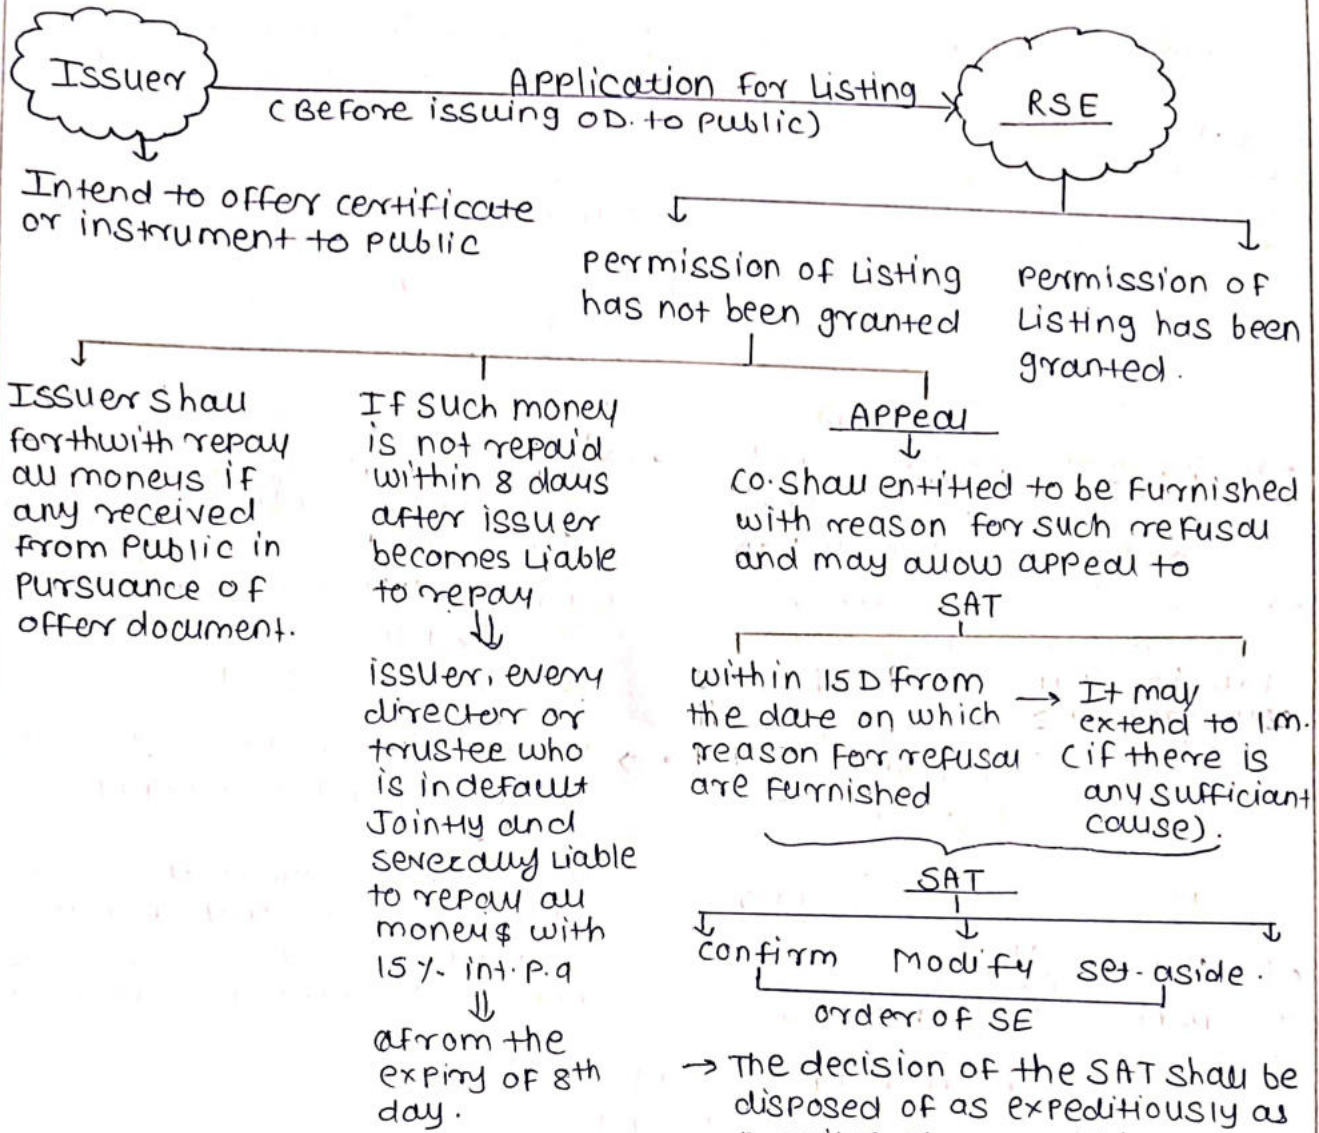 Issuer
Application for Listing
(Before issuing OD. to public)
RSE
Intend to offer certificate
or instrument to public
permission of Listing
has not been granted
permission of
Listing has been
granted.
Issuer shall
forthwith repay
all moneys if
any received
from Public in
pursuance of
offer document.
If such money
is not repaid
within 8 days
after issuer
becomes Liable
to repay
issuer, every
director or
trustee who
is in default
Jointly and
severally Liable
to repay all
money$ with
15 %. int. p.a
afrom the
expiry of 8th
day.
Appeal
Co. shall entitled to be Furnished
with reason for such refusal
and may allow appeal to
SAT
within 15 D from
the date on which
reason for refusal
are Furnished
→ It may
extend to 1.m.
(if there is
any sufficiant
cause).
SAT
confirm
Modify
set-aside.
order of SE
→ The decision of the SAT shall be
disposed of as expeditiously as